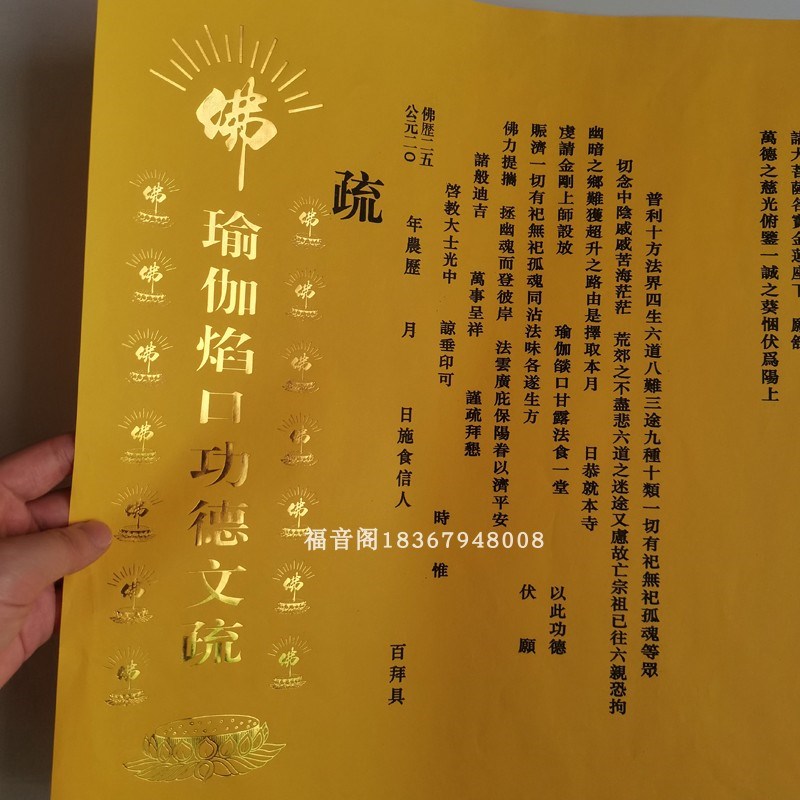 諸大菩薩各賁金蓮座下 願舒
萬德之慈光俯鑒一誠之葵悃伏爲陽上
普利十方法界四生六道八難三途九種十類一切有祀無祀孤魂等眾
切念中陰戚戚苦海茫茫 荒郊之不盡悲六道之迷途又慮故亡宗祖已往六親恐拘
幽暗之鄉難獲超升之路由是擇取本月 日恭就本寺
虔請金剛上師設放 瑜伽燄口甘露法食一堂 以此功德
賑濟一切有祀無祀孤魂同沾法味各遂生方 伏願
佛力提攜 拯幽魂而登彼岸 法雲廣庇保陽眷以濟平安
諸般迪吉 萬事呈祥 謹疏拜懇
啓教大士光中 諒垂印可 時惟
佛歷二五
公元二〇 年農歷 月 日施食信人 百拜具
疏
佛
瑜伽焰口功德文疏
佛
佛
佛
佛
佛
佛
佛
佛
佛
佛
佛
佛
佛
佛
福音阁18367948008